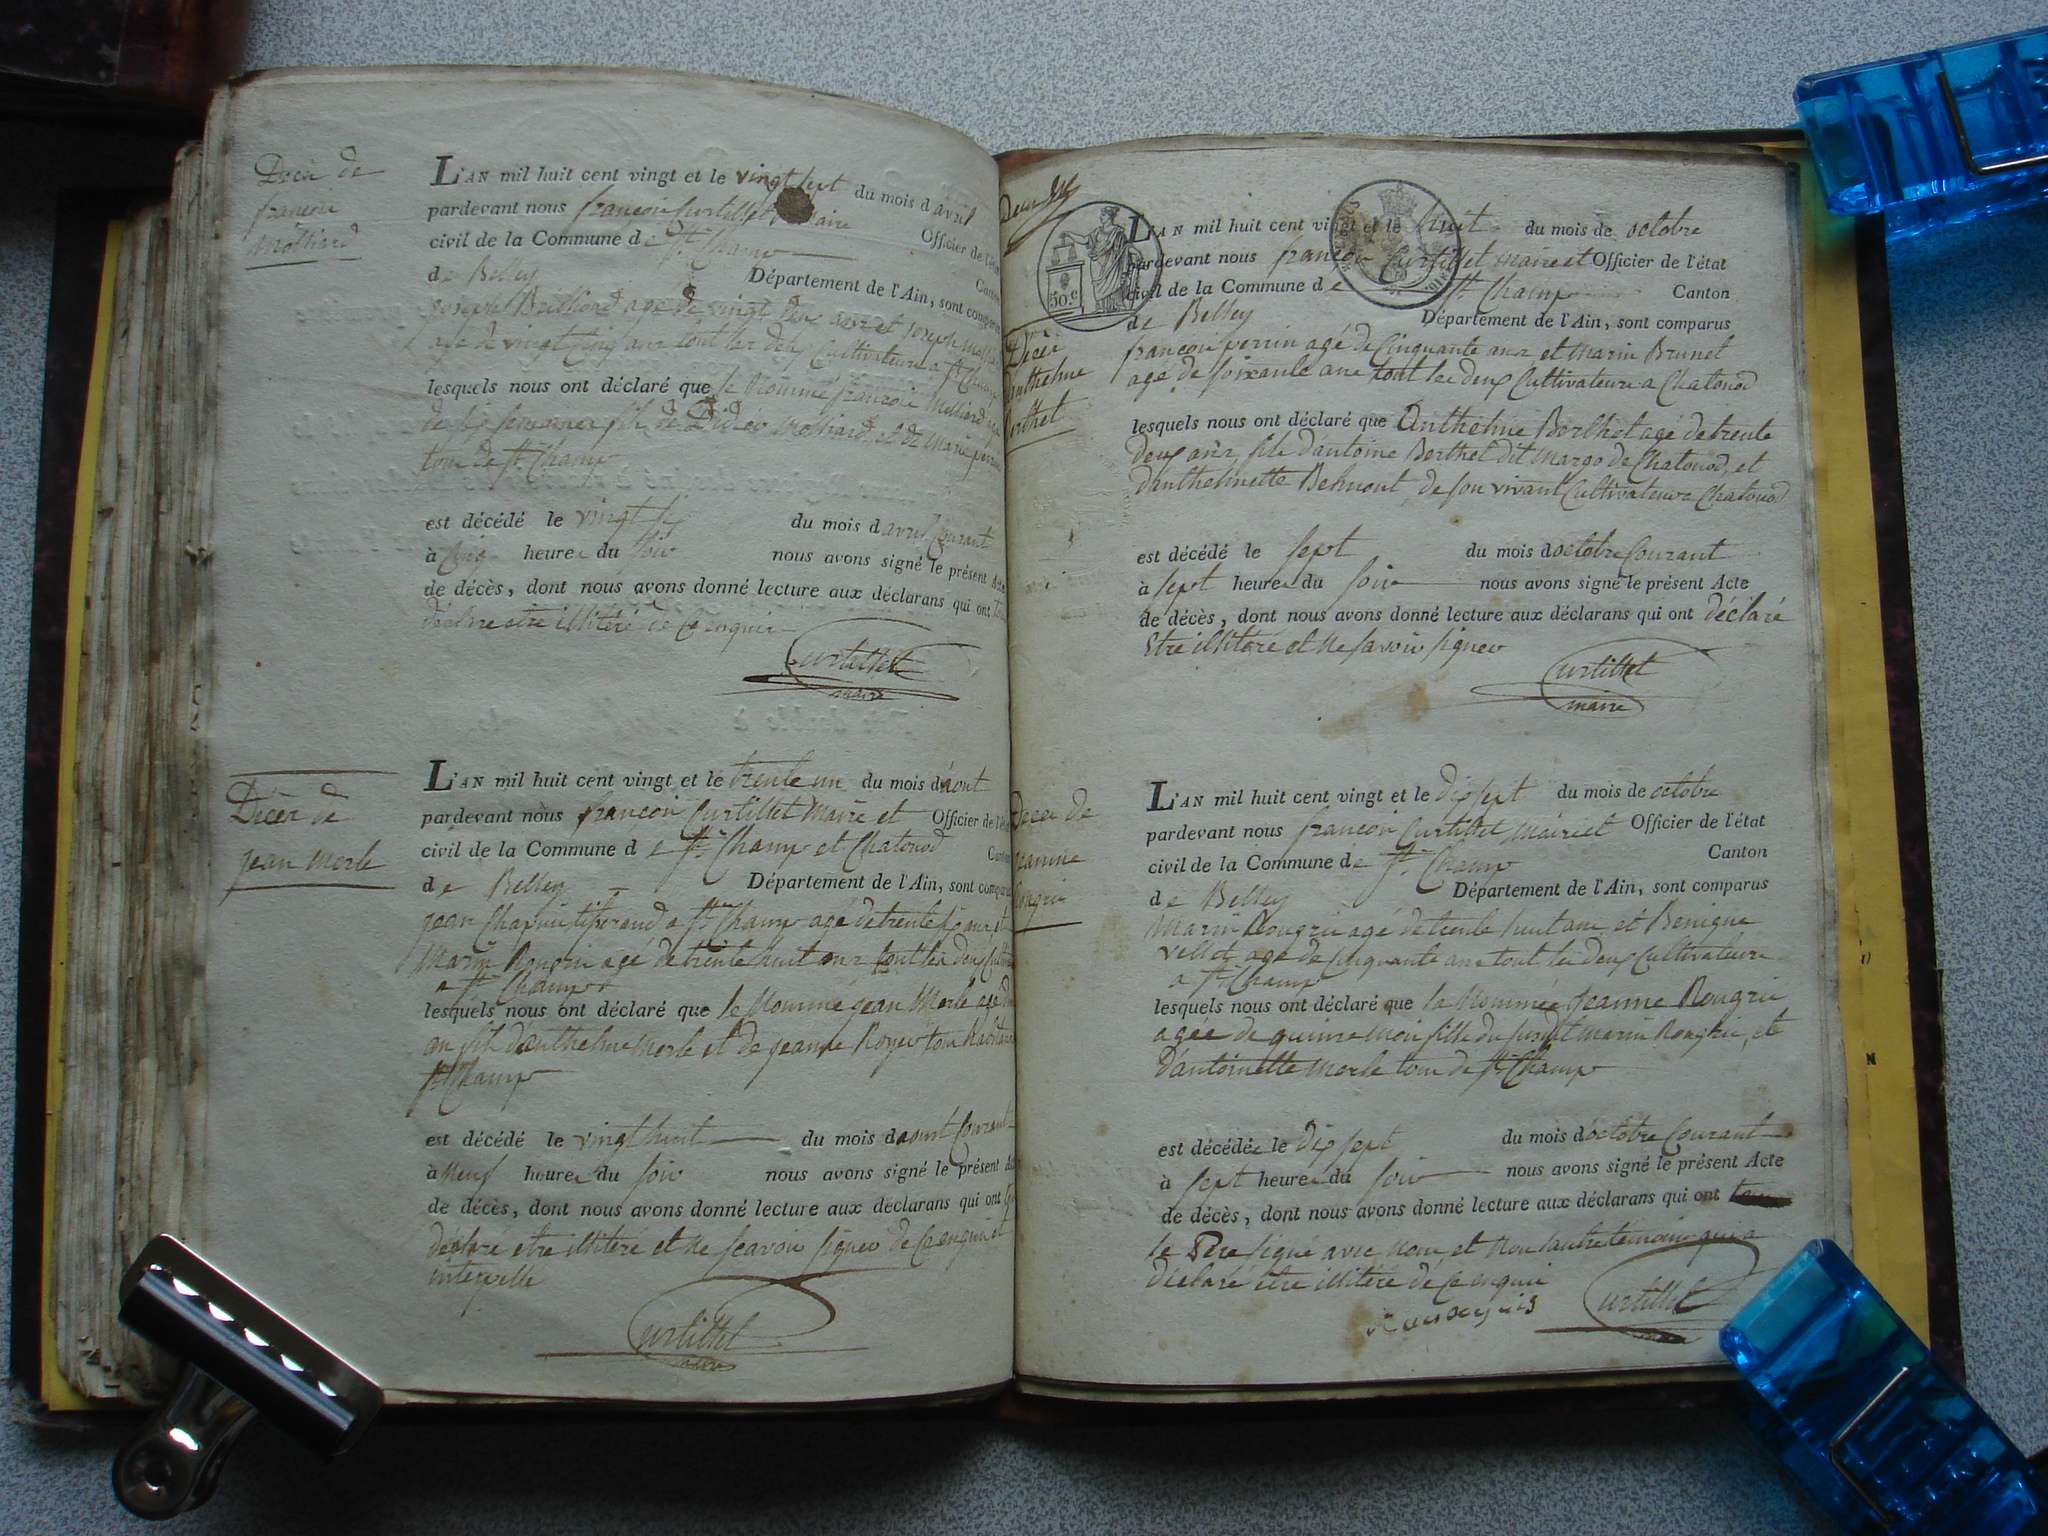 Décè de
françois
Molliard
L'AN mil huit cent vingt et le vingt sept du mois d avril
pardevant nous françois Curtillet maire
Officier de l'état
civil de la Commune de St. Champ
Canton
de Belley
Département de l'Ain, sont comparus
joseph Brilliard agé de vingt deux ans et joseph
agé de vingt cinq ans tout les deux Cultivateurs a St. Champ
lesquels nous ont déclaré que le Nommé françois Molliard
de fils de Didier Molliard et de Marie perrin
tous de St. Champ
est décédé le vingt six du mois d avril Courant
à cinq heures du soir nous avons signé le présent Acte
de décès, dont nous avons donné lecture aux déclarans qui ont
déclaré etre illitéré de Ce enquis
Curtillet
maire
Décèr de
jean Merle
L'AN mil huit cent vingt et le trente un du mois d'aout
pardevant nous françois Curtillet Maire et Officier de l'état
civil de la Commune de St. Champ et Chatonod
Canton
de Belley Département de l'Ain, sont comparus
jean Chapuis tisserand a St. Champ agé de trente six ans et
Marin Rougrii agé de trente huit ans tout les deux
a St. Champ
lesquels nous ont déclaré que le Nommé jean Merle agé d'un
an fils d'anthelme Merle et de jeanne Royer tous
St. Champ
est décédé le vingt huit du mois d aout Courant
à Neuf heures du soir nous avons signé le présent
de décès, dont nous avons donné lecture aux déclarans qui ont
déclaré etre illitéré et ne scavoir signer de Ce enquis et
interpellé
Curtillet
maire
50.c
L'AN mil huit cent vingt et le huit du mois de octobre
pardevant nous françois Curtillet maire et Officier de l'état
civil de la Commune de St. Champ Canton
de Belley
Département de l'Ain, sont comparus
Décèr
D'anthelme
Berthet
françois perrin agé de Cinquante ans et Marin Brunet
agé de soixante ans tout les deux Cultivateurs a Chatonod
lesquels nous ont déclaré que Anthelme Berthet agé de trente
deux ans, fils d'antoine Berthet dit Margo de Chatonod, et
d'anthelmette Belmont, de son vivant Cultivateur a Chatonod
est décédé le sept du mois d octobre Courant
à sept heures du soir nous avons signé le présent Acte
de décès, dont nous avons donné lecture aux déclarans qui ont déclaré
Etre illitére et ne savoir signer
Curtillet
maire
Decer de
jeanne
Rougrii
L'AN mil huit cent vingt et le dix sept du mois de octobre
pardevant nous françois Curtillet Maire et Officier de l'état
civil de la Commune de St. Champ Canton
de Belley Département de l'Ain, sont comparus
Marin Rougrii agé de trente huit ans et Benigne
Villot agé de cinquante ans tout les deux Cultivateurs
a St. Champ
lesquels nous ont déclaré que la Nommée jeanne Rougrii
agée de quinze mois fille du susdit Marin Rougrii, et
D'antoinette Merle tous de St. Champ
est décédée le dix sept du mois d octobre Courant
à sept heures du soir nous avons signé le présent Acte
de décès, dont nous avons donné lecture aux déclarans qui ont
le Pere signé avec Nous, et Non l'autre témoin qui a
déclaré être illitéré dé Ce enquis
Curtillet
maire